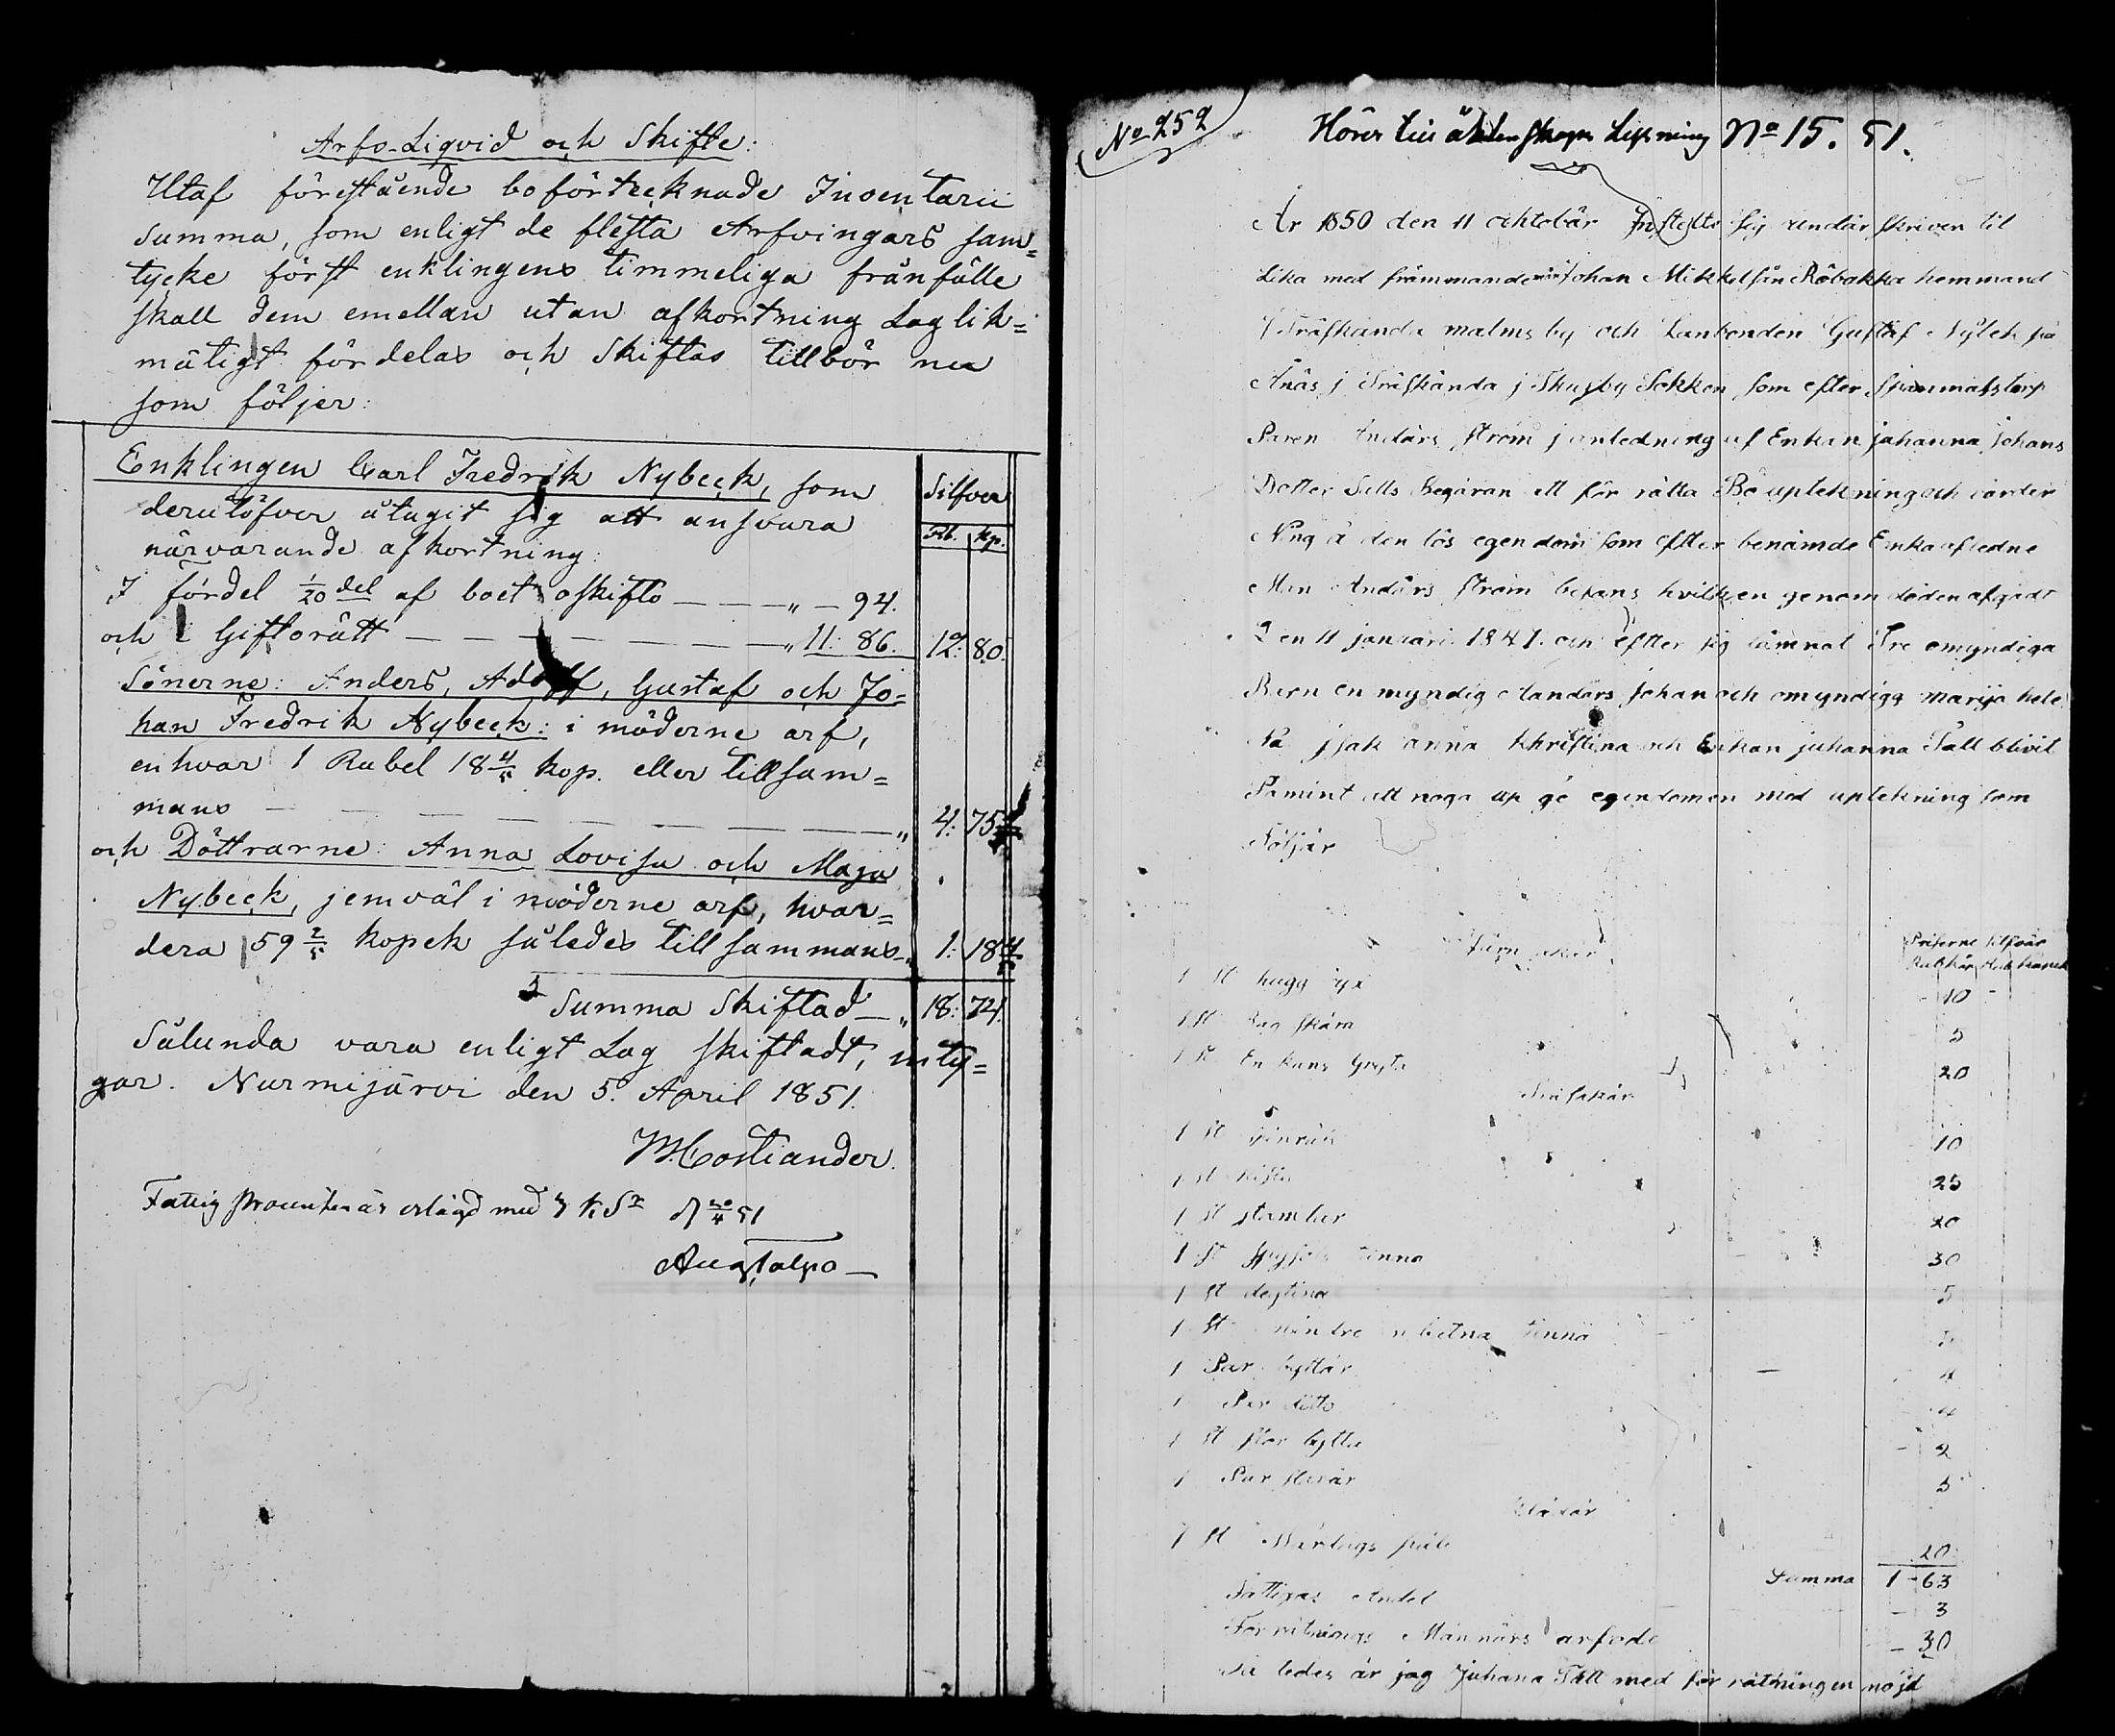 Arfs-Liqvid och Skifte:
Utaf förestående boförtecknade Inventarii
summa, som enligt de flesta Arfvingars sam=
tycke först enklingens timmeliga frånfälle
skall dem emellan utan afkortning Laglik=
mätigt fördelas och Skiftas tillbör nu
som följer:
Enklingen Carl Fredrik Nybeck, som
derutöfver åtagit sig att ansvara
närvarande afkortning:
Silfver
Rb. Kp.
I fördel 1/20 del af boet oskifto — — — „ — 94.
och i Giftorätt — — — — — — „ 11: 86. 12: 80.
Sönerne: Anders, Adolf, Gustaf och Jo-
han Fredrik Nybeck: i möderne arf,
enhvar 1 Rubel 18 4/5 kop. eller tillsam=
mans — — — — — — — „ 4: 75 1/5
och Döttrarne: Anna Lovisa och Maja
Nybeck, jemväl i möderne arf, hvar=
dera 59 2/5 kopek således tillsammans „ 1: 18 4/5
Summa Skiftad — „ 18: 74.
Sålunda vara enligt Lag skiftadt, inty=
gar. Nurmijärvi den 5. April 1851.
M. Costiander.
Fattig procenten är erlagd med 3 K. Sr d 30/4 51
No 252
Hörer till Lysning No 15. 51.
År 1850 den 11 ochtobär Instelte sig undär skriven til
Lika med främmande Johan Mikkelsån Råbakka hemmand
I Träskända malms by och Lanbonden Gustaf Nylek på
Änäs j Träskända j Thusby Sokken som efter
Paren Andärs ström j anledning af Enkan johanna johans
Dotter Sälls Begäran att för rätta Bo uptekning och värder
Ning å den lös egendom som efter benämde Enka afledne
Man Andärs ström befans hvilken genom döden afgådt
Den 11 januari 1847. och efter sig lämnat Tre omyndiga
Barn en myndig Andars johan och omyndiga marija hele
Na jsak anna khristina och Enkan juhanna Säll blivit
Pämint att noga up gé egendomen med uptekning som
Följär
Järn sakar
Priserne silfvär
1 st hugg yx 10
1 st skäm 5
1 st En kans Gryta 20
Träsakär
1 st 10
1 st kista 25
1 st 20
1 st tinna 30
1 st degtina 5
1 st mindre tinna 5
1 Par byttar 4
1 Par ditto 4
1 st stor bytta 2
1 Par 3
Klädär
1 st Märdags 20
Summa 1 – 63
Fattigas Andel – 3
Förrätnings Männärs arfvode – 30
Så ledes är jag Juhana Säll med för rätningen nöjd